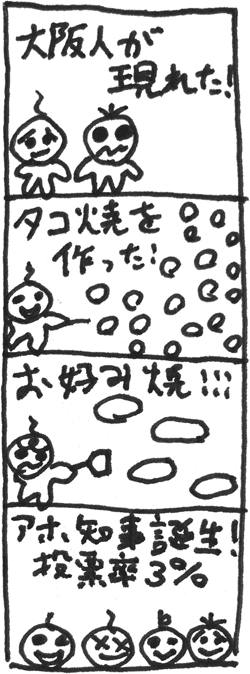 大阪人が
現れた!
タコ焼を
作った!
お好み焼!!!
アホ知事誕生!
投票率3%